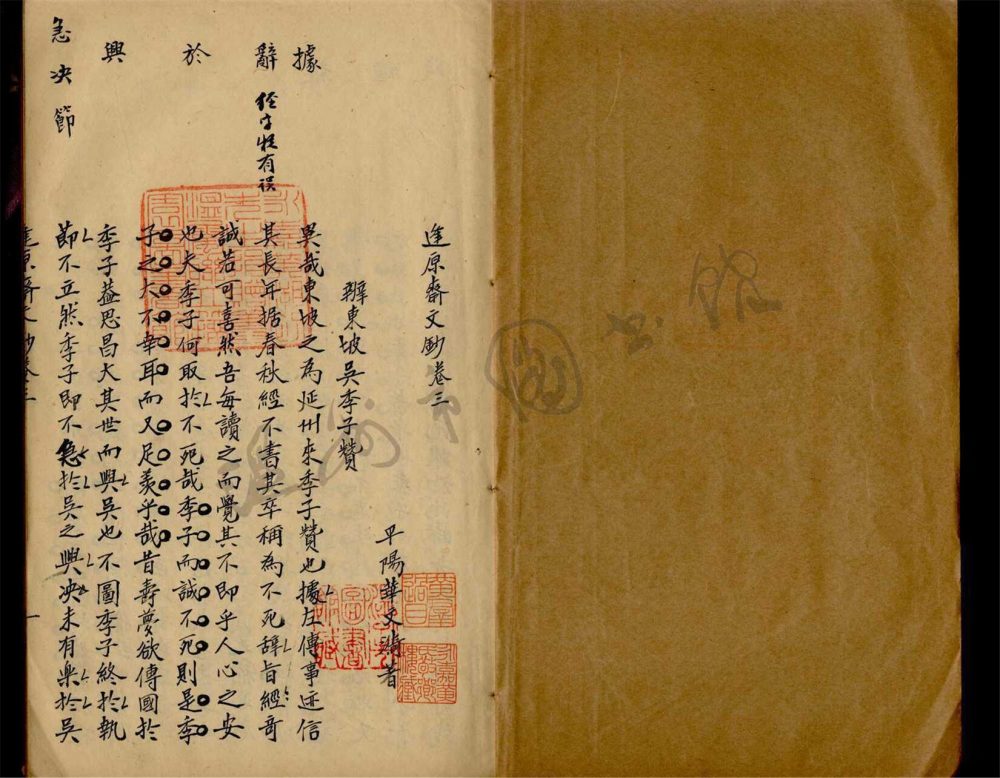 逢原齋文鈔卷三
平陽華文漪著
辨東坡吳季子贊
異哉東坡之為延州來季子贊也據左傳事迹信
其長年据春秋經不書其卒稱為不死辭旨經奇
誠若可喜然吾每讀之而覺其不即乎人心之安
也夫季子何取於不死哉季子而誠不死則是季
子之大不幸耳而又足羨乎哉昔壽夢欲傳國於
季子蓋思昌大其世而興吳也不圖季子終於執
節不立然季子即不急於吳之興决未有樂於吳
據
辭 經字恐有誤
於
興
急 决 節
逢原齋文鈔卷三 一
溫州市圖書館